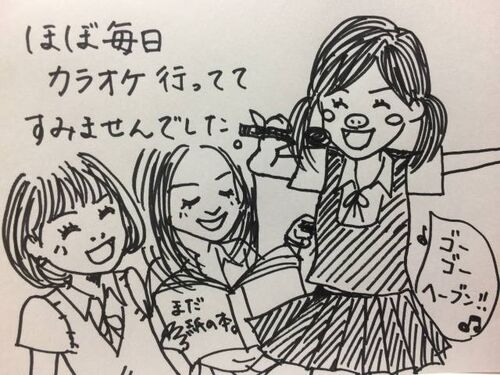 ほぼ毎日
カラオケ行ってて
すみませんでした。
まだ
紙の本。
ゴー
ゴー
ヘーブン!!